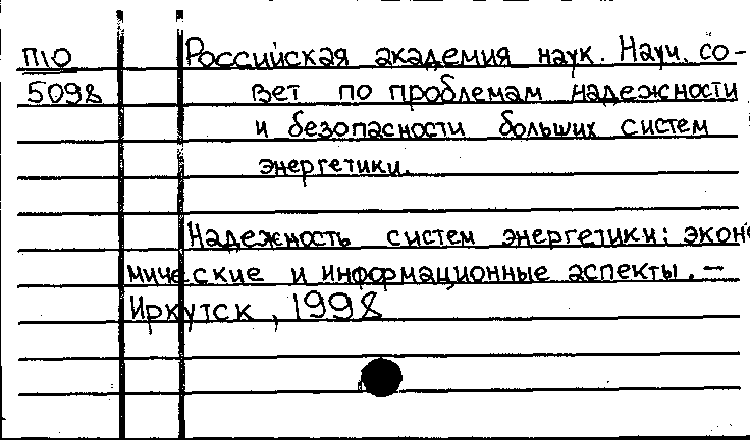 П10 Российская академия наук. Науч. со-
5098 вет по проблемам надежности
и безопасности больших систем
энергетики.
Надежность систем энергетики: эконо
мические и информационные аспекты. —
Иркутск, 1998